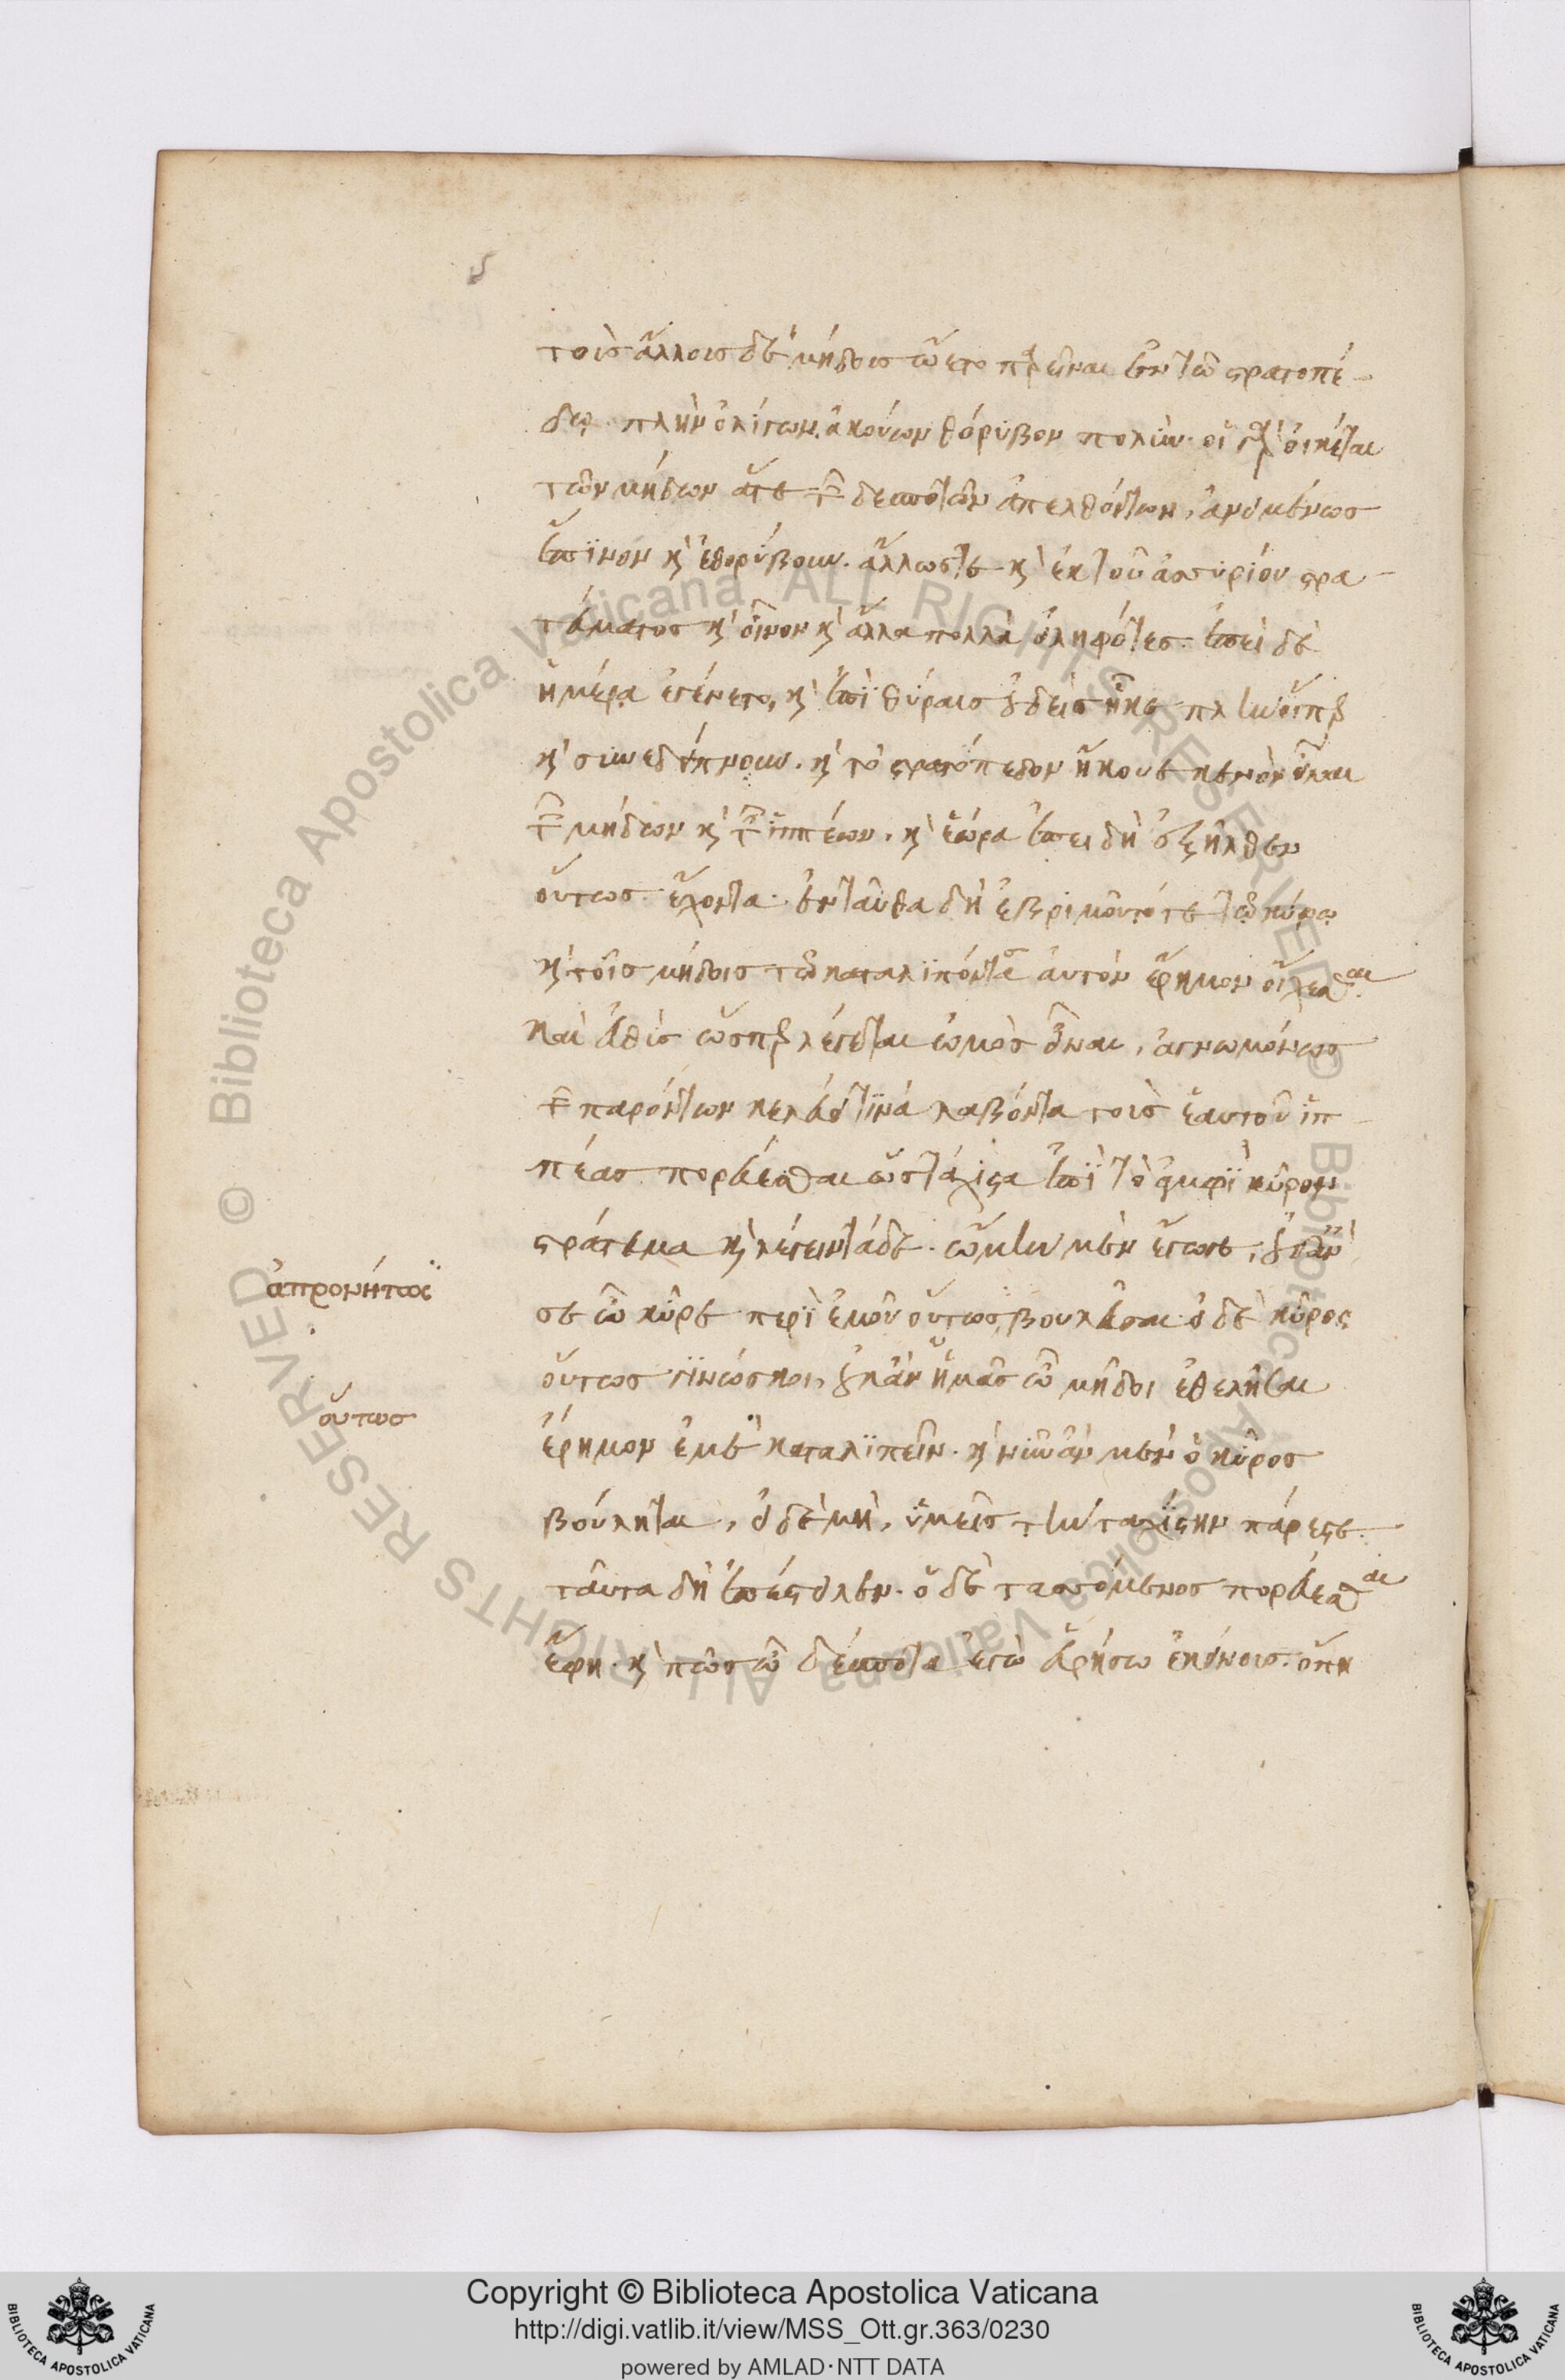 τοὺς ἄλλους δὲ μήδους ὤετο παρεῖναι ἐν τῶ στρατοπέ-
δῳ πλὴν ὀλίγων. ἀκούων θόρυβον πολὺν· οἱ γὰρ οἰκέται
τῶν μήδων ἅτε τῶν δεσποτῶν ἀπελθόντων, ἀνειμένως
ἔπινον καὶ ἐθορύβουν. ἄλλως τε καὶ ἐκ τοῦ ἀσσυρίου στρα-
τεύματος καὶ οἶνον καὶ ἄλλα πολλὰ εἰληφότες. ἐπεὶ δὲ
ἡμέρα ἐγένετο, καὶ ἐπὶ θύραις οὐδεὶς ἧκε πλὴν οἵπερ
καὶ συνεδείπνουν. καὶ τὸ στρατόπεδον ἤκουε κενὸν εἶναι
τῶν μήδων καὶ τῶν ἱππέων. καὶ ἑώρα ἐπειδὴ ἐξῆλθεν
οὕτως ἔχοντα. ἐνταῦθα δὴ ἐβριμοῦτό τε τῶ κύρῳ
καὶ τοῖς μήδοις τῶ καταλιπόντας αὐτὸν ἔρημον οἴχεσθαι
καὶ εὐθὺς ὥσπερ λέγεται ὠμὸς εἶναι, ἀγνωμόνως
τῶν παρόντων κελεύει τινὰ λαβόντα τοὺς ἑαυτοῦ ἱπ-
πέας πορεύεσθαι ὡς τάχιστα ἐπὶ τὸ ἀμφὶ κῦρον
στράτευμα καὶ λέγειν τάδε. ὤμην μὲν ἔγωγε, οὐδ' ἂν
σε ὦ κῦρε περὶ ἐμοῦ οὕτως βουλεῦσαι· εἰ δὲ κῦρος
οὕτως γινώσκοι, οὐκ ἂν ὑμᾶς ὦ μῆδοι ἐθελῆσαι
ἔρημον ἐμὲ καταλιπεῖν. καὶ νῦν ἂν μὲν ὁ κῦρος
βούληται, εἰ δὲ μὴ, ὑμεῖς τὴν ταχίστην πάρεστε.
ταῦτα δὴ ἐπέστειλεν. ὁ δὲ τασσόμενος πορεύεσθαι
ἔφη. καὶ πῶς ὦ δέσποτα ἐγὼ εὑρήσω ἐκείνους. ὅπη
ἀπρονήτως
οὕτως